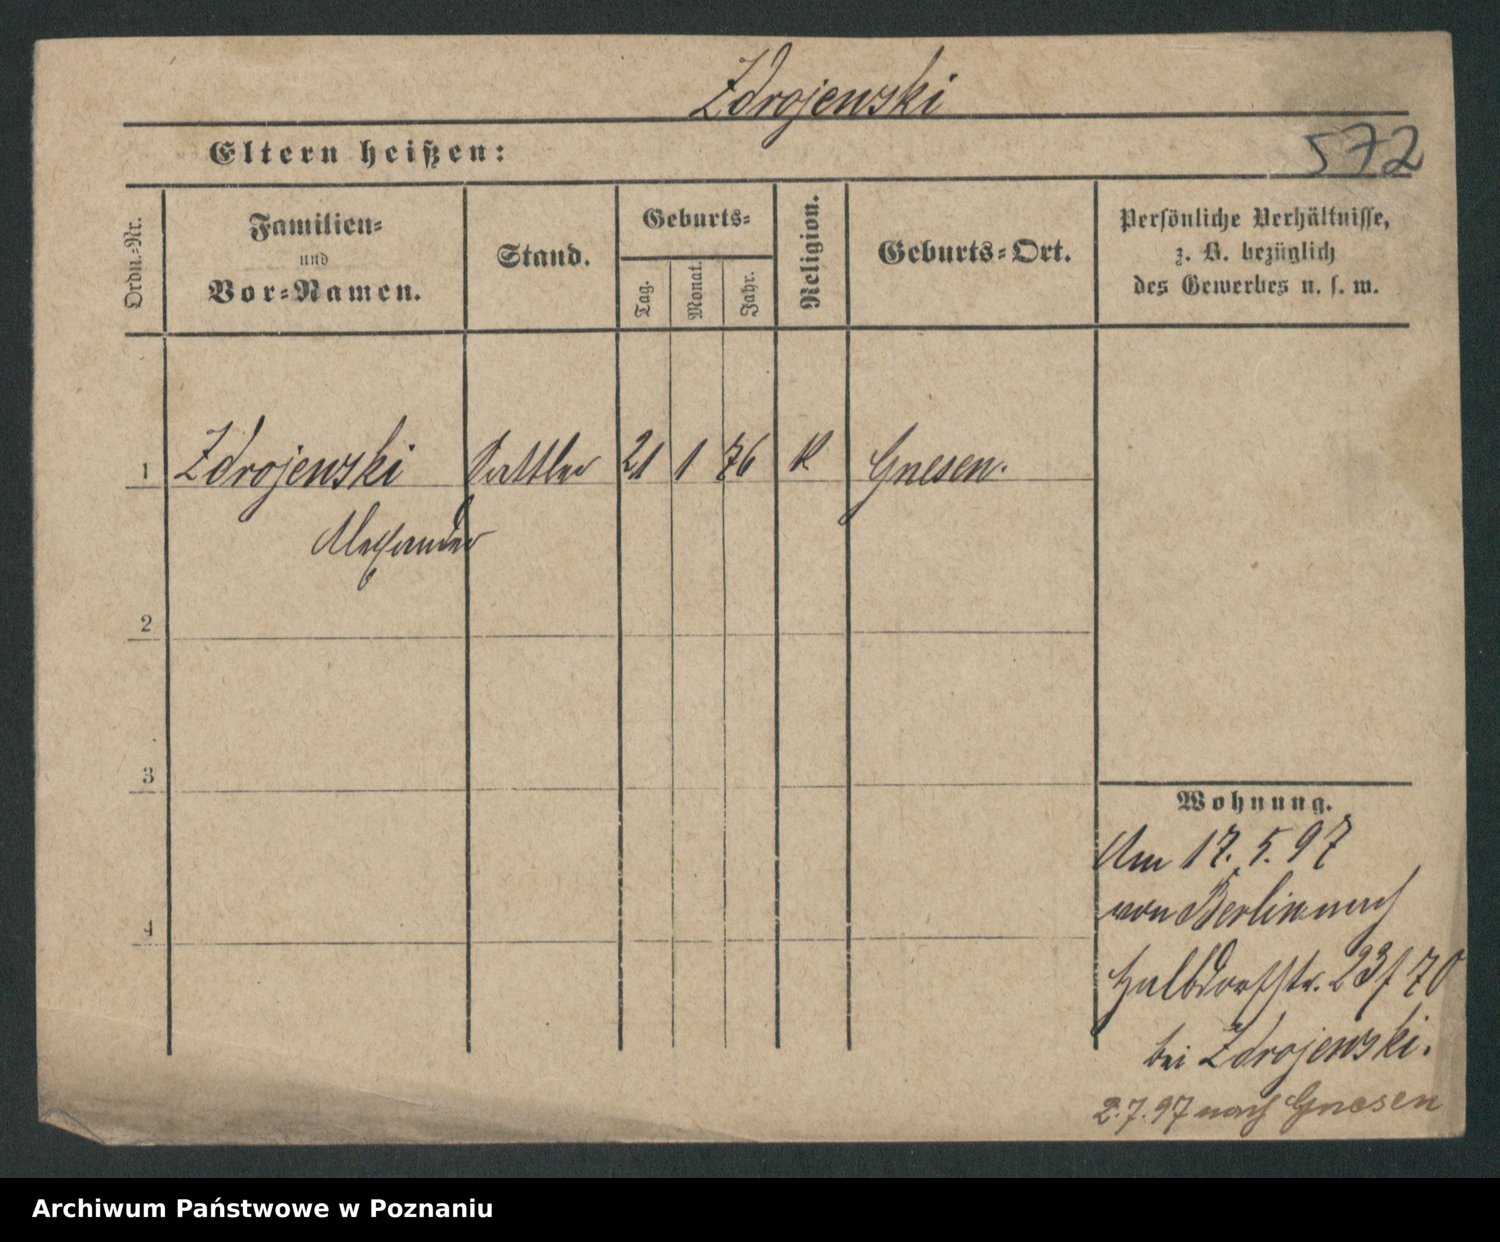 Zdrojewski
Eltern heißen:
572
Ordn.-Nr.
Familien-
und
Vor-Namen.
Stand.
Geburts-
Tag.
Monat.
Jahr.
Religion.
Geburts-Ort.
Persönliche Verhältnisse,
z. B. bezüglich
des Gewerbes u. s. w.
1 Zdrojewski Sattler 21 1 76 K Gnesen.
Alexander
2
3
4
Wohnung.
Am 17. 5. 97
von Berlin nach
Halbdorfstr. 23 f 70
bei Zdrojewski.
2.7.97 nach Gnesen
Archiwum Państwowe w Poznaniu